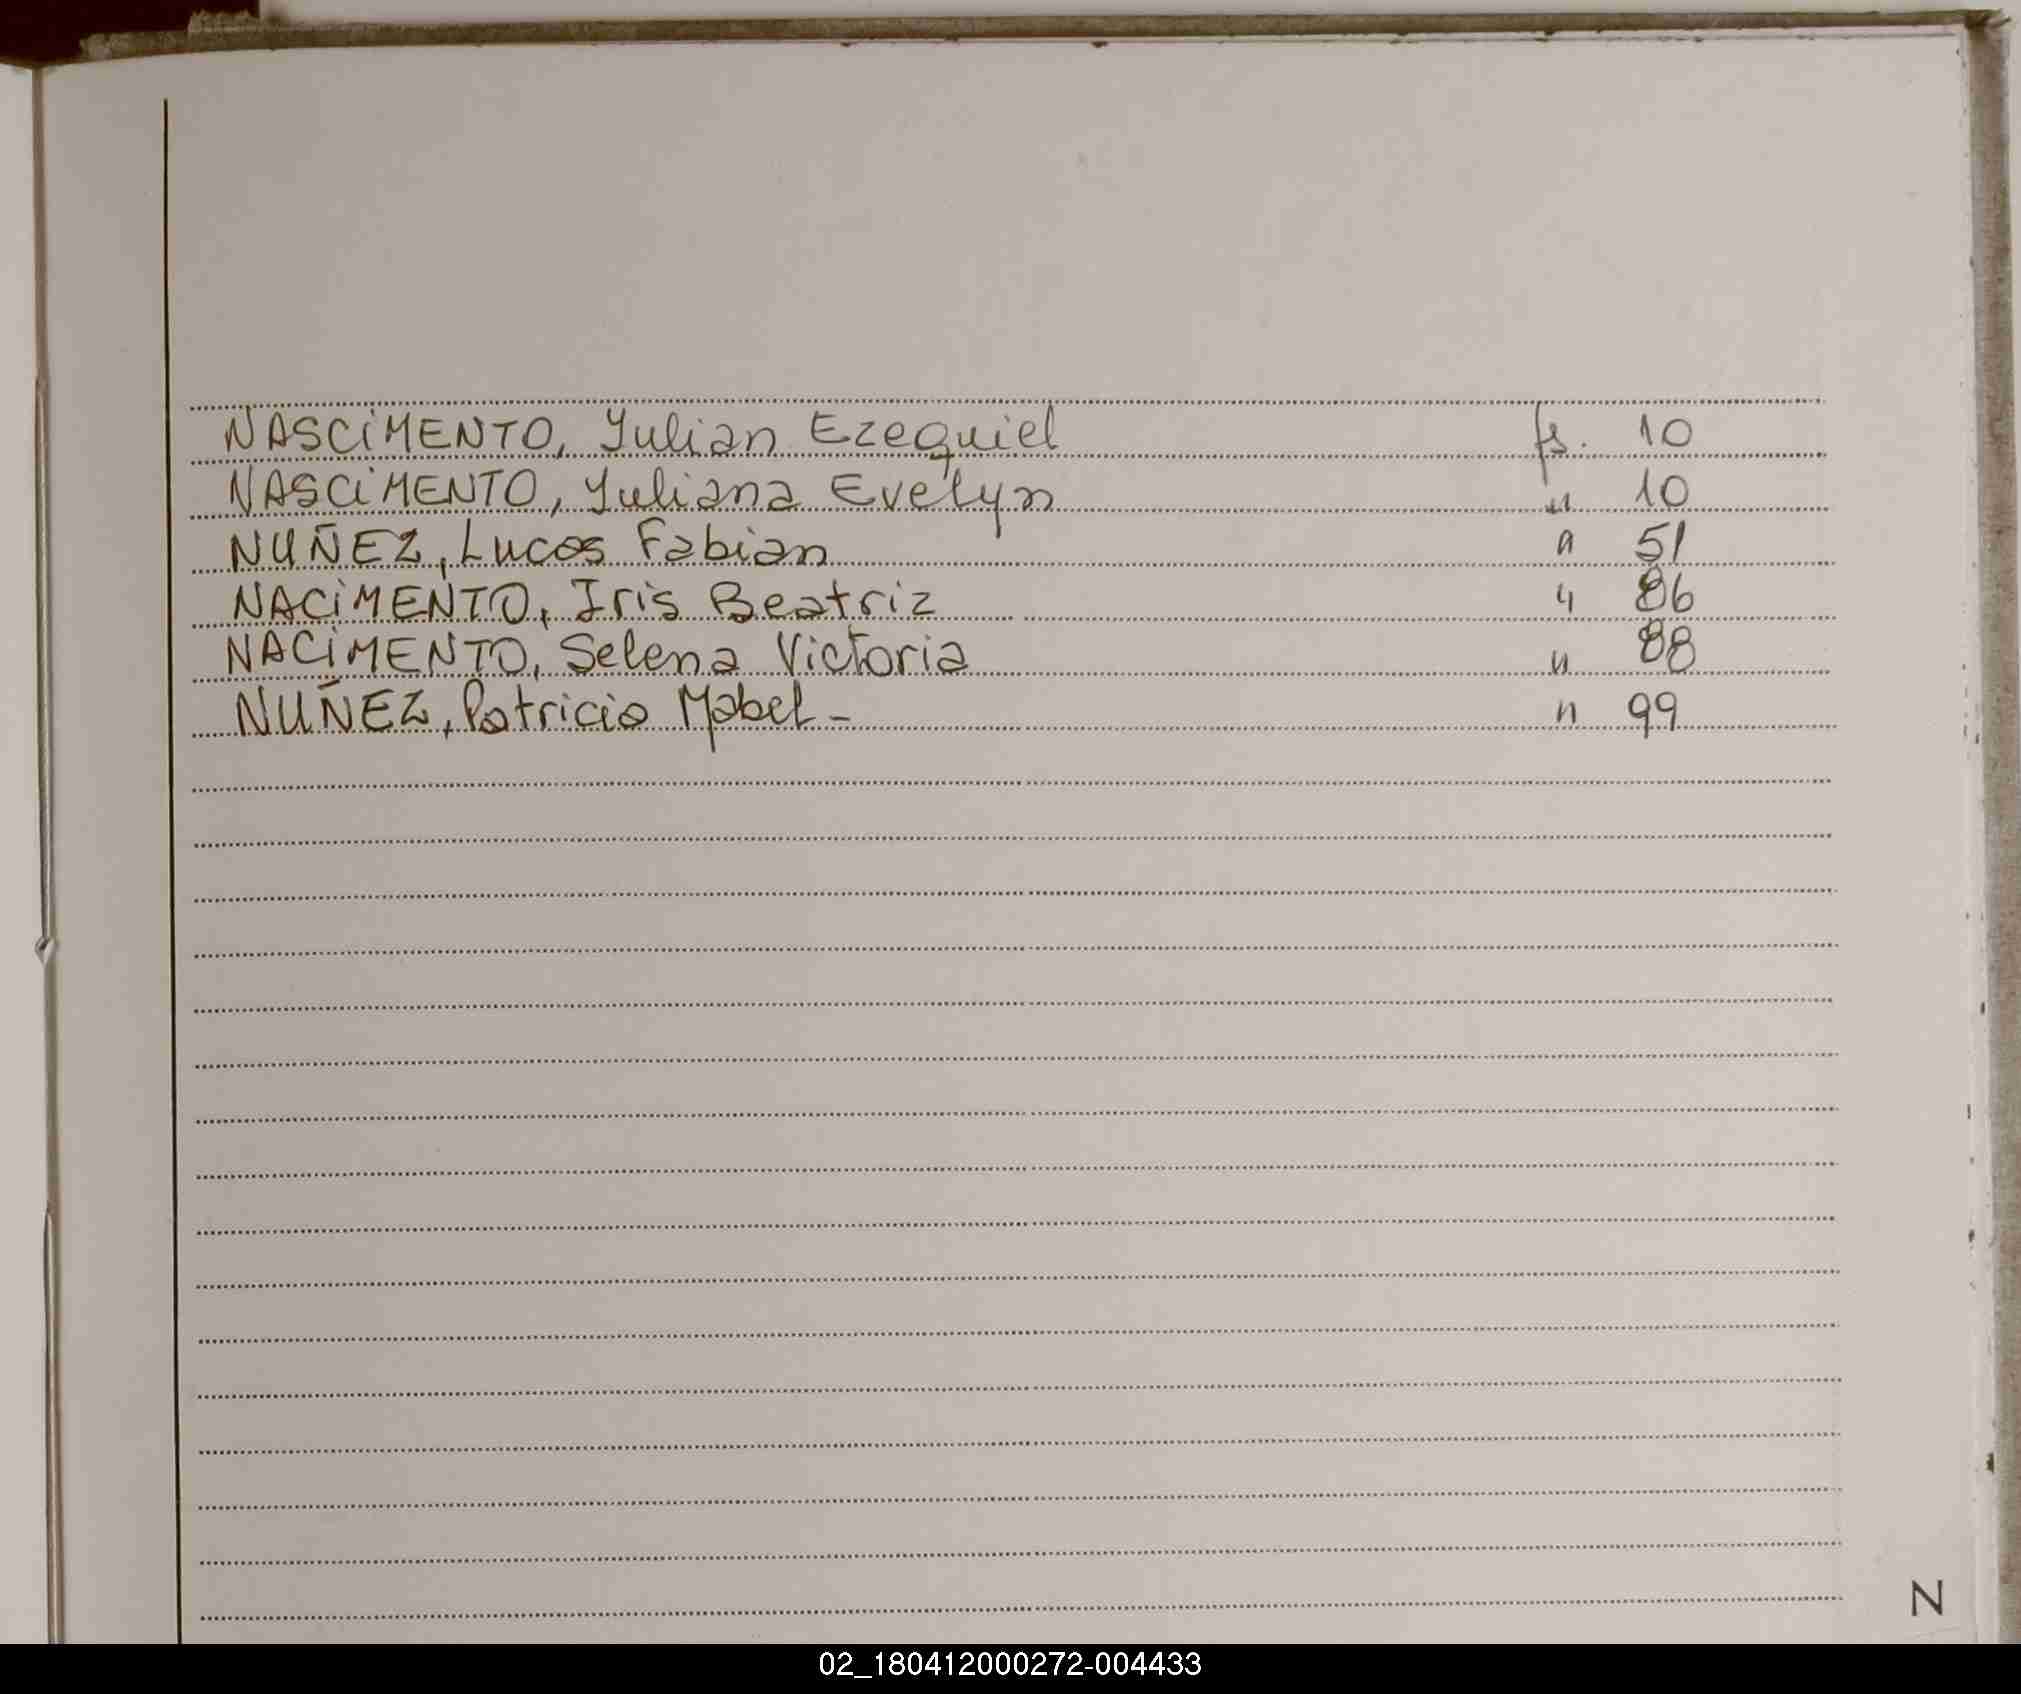 NASCIMENTO, Yulian Ezequiel fs. 10
NASCIMENTO, Yuliana Evelyn " 10
NUÑEZ, Lucas Fabian " 51
NACIMENTO, Iris Beatriz " 86
NACIMENTO, Selena Victoria " 88
NUÑEZ, Patricia Mabel - " 99
N
02_180412000272-004433